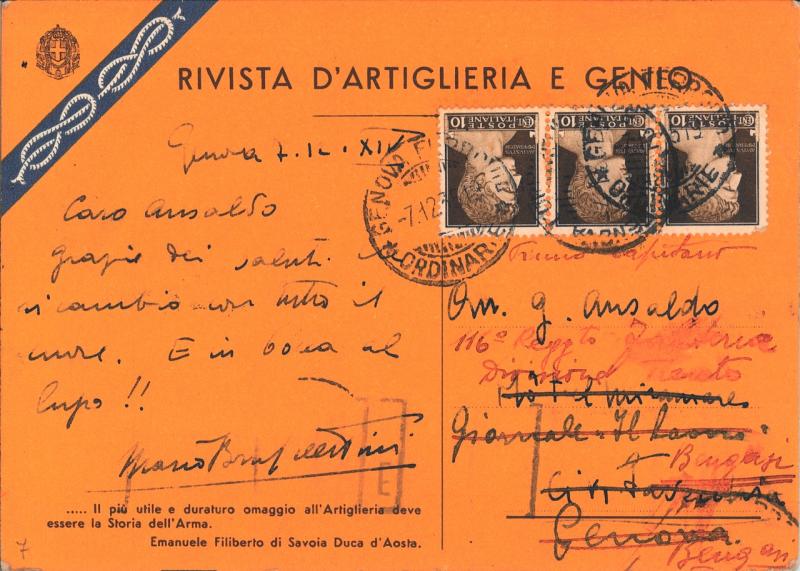 RIVISTA D'ARTIGLIERIA E GENIO
CENT. 10
POSTE ITALIANE
CENT. 10
POSTE ITALIANE
CENT. 10
POSTE ITALIANE
GENOVA
-7.12
ORDINARIE
Genova 7.12.XIV
Caro Ansaldo
grazie dei saluti
ricambio con tutto il
cuore. E in bocca al
lupo!!
Mario
Primo Capitano
On. G. Ansaldo
116º Reggto Fanteria
Divisione
Miramare
Giornale "Il Lavoro"
Bengasi
Genova
E
..... Il più utile e duraturo omaggio all'Artiglieria deve
essere la Storia dell'Arma.
Emanuele Filiberto di Savoia Duca d'Aosta.
7